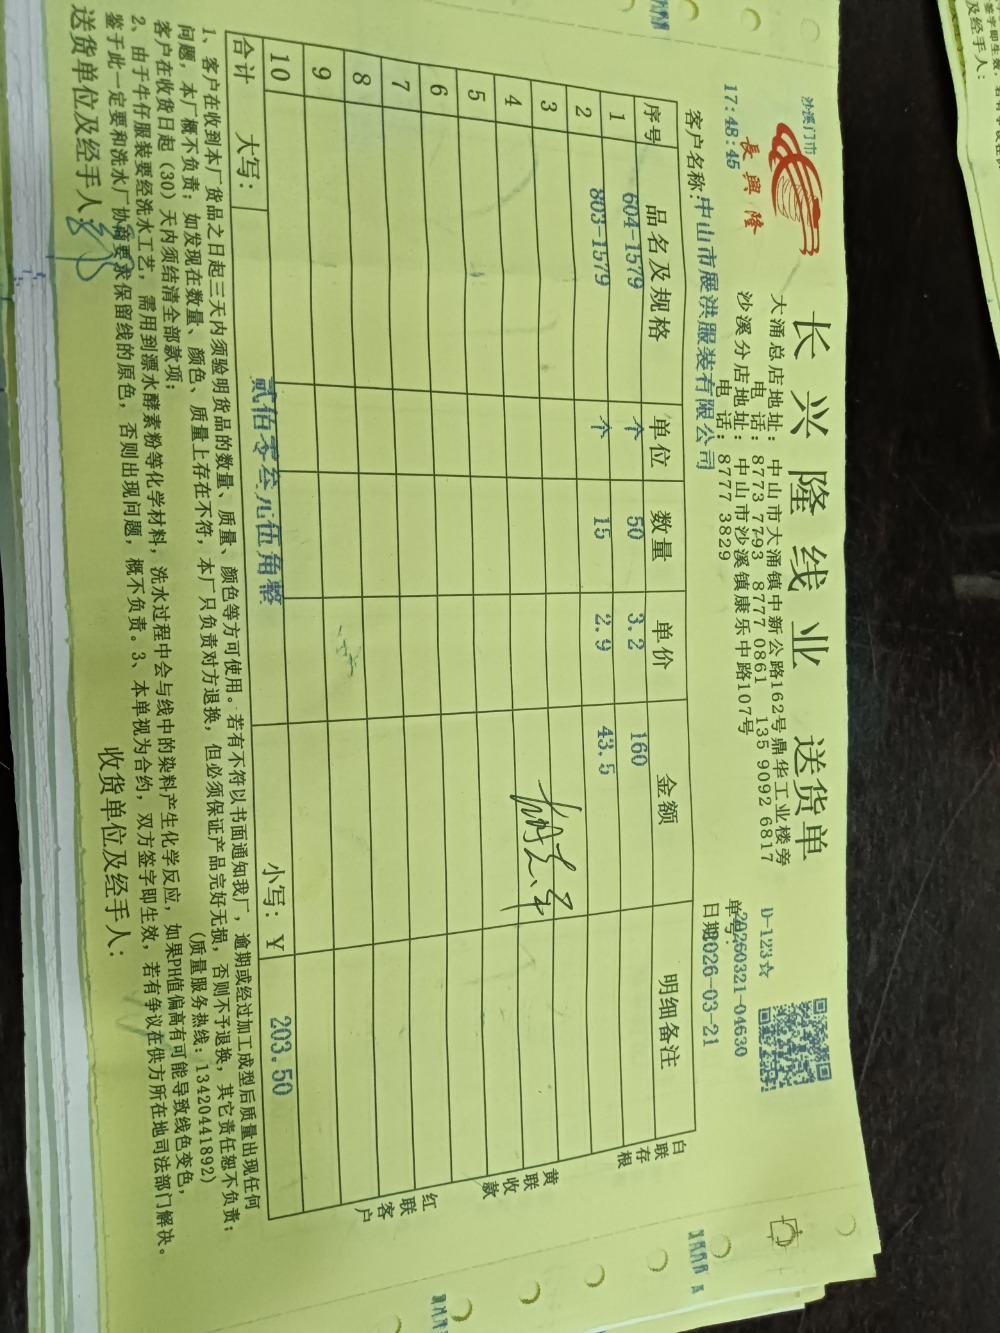 沙溪门市
長興隆
17:48:45
长兴隆线业 送货单
大涌总店地址：中山市大涌镇中新公路162号鼎华工业楼旁
电 话：8773 7793 8777 0861 135 9092 6817
沙溪分店地址：中山市沙溪镇康乐中路107号
电 话：8777 3829
D-123☆
单号：20260321-04630
日期：2026-03-21
客户名称：中山市展洪服装有限公司
序号 品名及规格 单位 数量 单价 金额 明细备注
1 604-1579 个 50 3.2 160
2 803-1579 个 15 2.9 43.5
3
4
5
6
7
8
9
10
合计 大写： 贰佰零叁元伍角整 小写：￥ 203.50
白联存根
黄联收款
红联客户
1、客户在收到本厂货品之日起三天内须验明货品的数量、质量、颜色等方可使用。若有不符以书面通知我厂，逾期或经过加工成型后质量出现任何
问题，本厂概不负责；如发现在数量、颜色、质量上存在不符，本厂只负责对方退换，但必须保证产品完好无损，否则不予退换，其它责任恕不负责；
客户在收货日起（30）天内须结清全部款项； （质量服务热线：13420441892）
2、由于牛仔服装要经洗水工艺，需用到漂水酵素粉等化学材料，洗水过程中会与线中的染料产生化学反应，如果PH值偏高有可能导致线色变色，
鉴于此一定要和洗水厂协商要求保留线的原色，否则出现问题，概不负责。3、本单视为合约，双方签字即生效，若有争议在供方所在地司法部门解决。
送货单位及经手人：
收货单位及经手人：
及经手人：